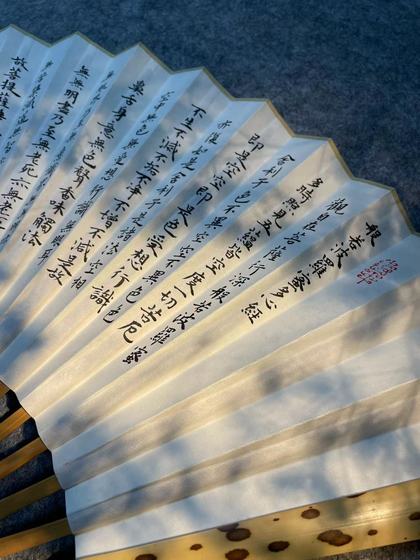 般若波羅蜜多心經
觀自在菩薩行深般若波羅蜜
多時照見五蘊皆空度一切苦厄
舍利子色不異空空不異色色
即是空空即是色受想行識
亦復如是舍利子是諸法空相
不生不滅不垢不淨不增不減是故
空中無色無受想行識無眼耳
鼻舌身意無色聲香味觸法
無無明盡乃至無老死亦無老死
故菩提薩埵